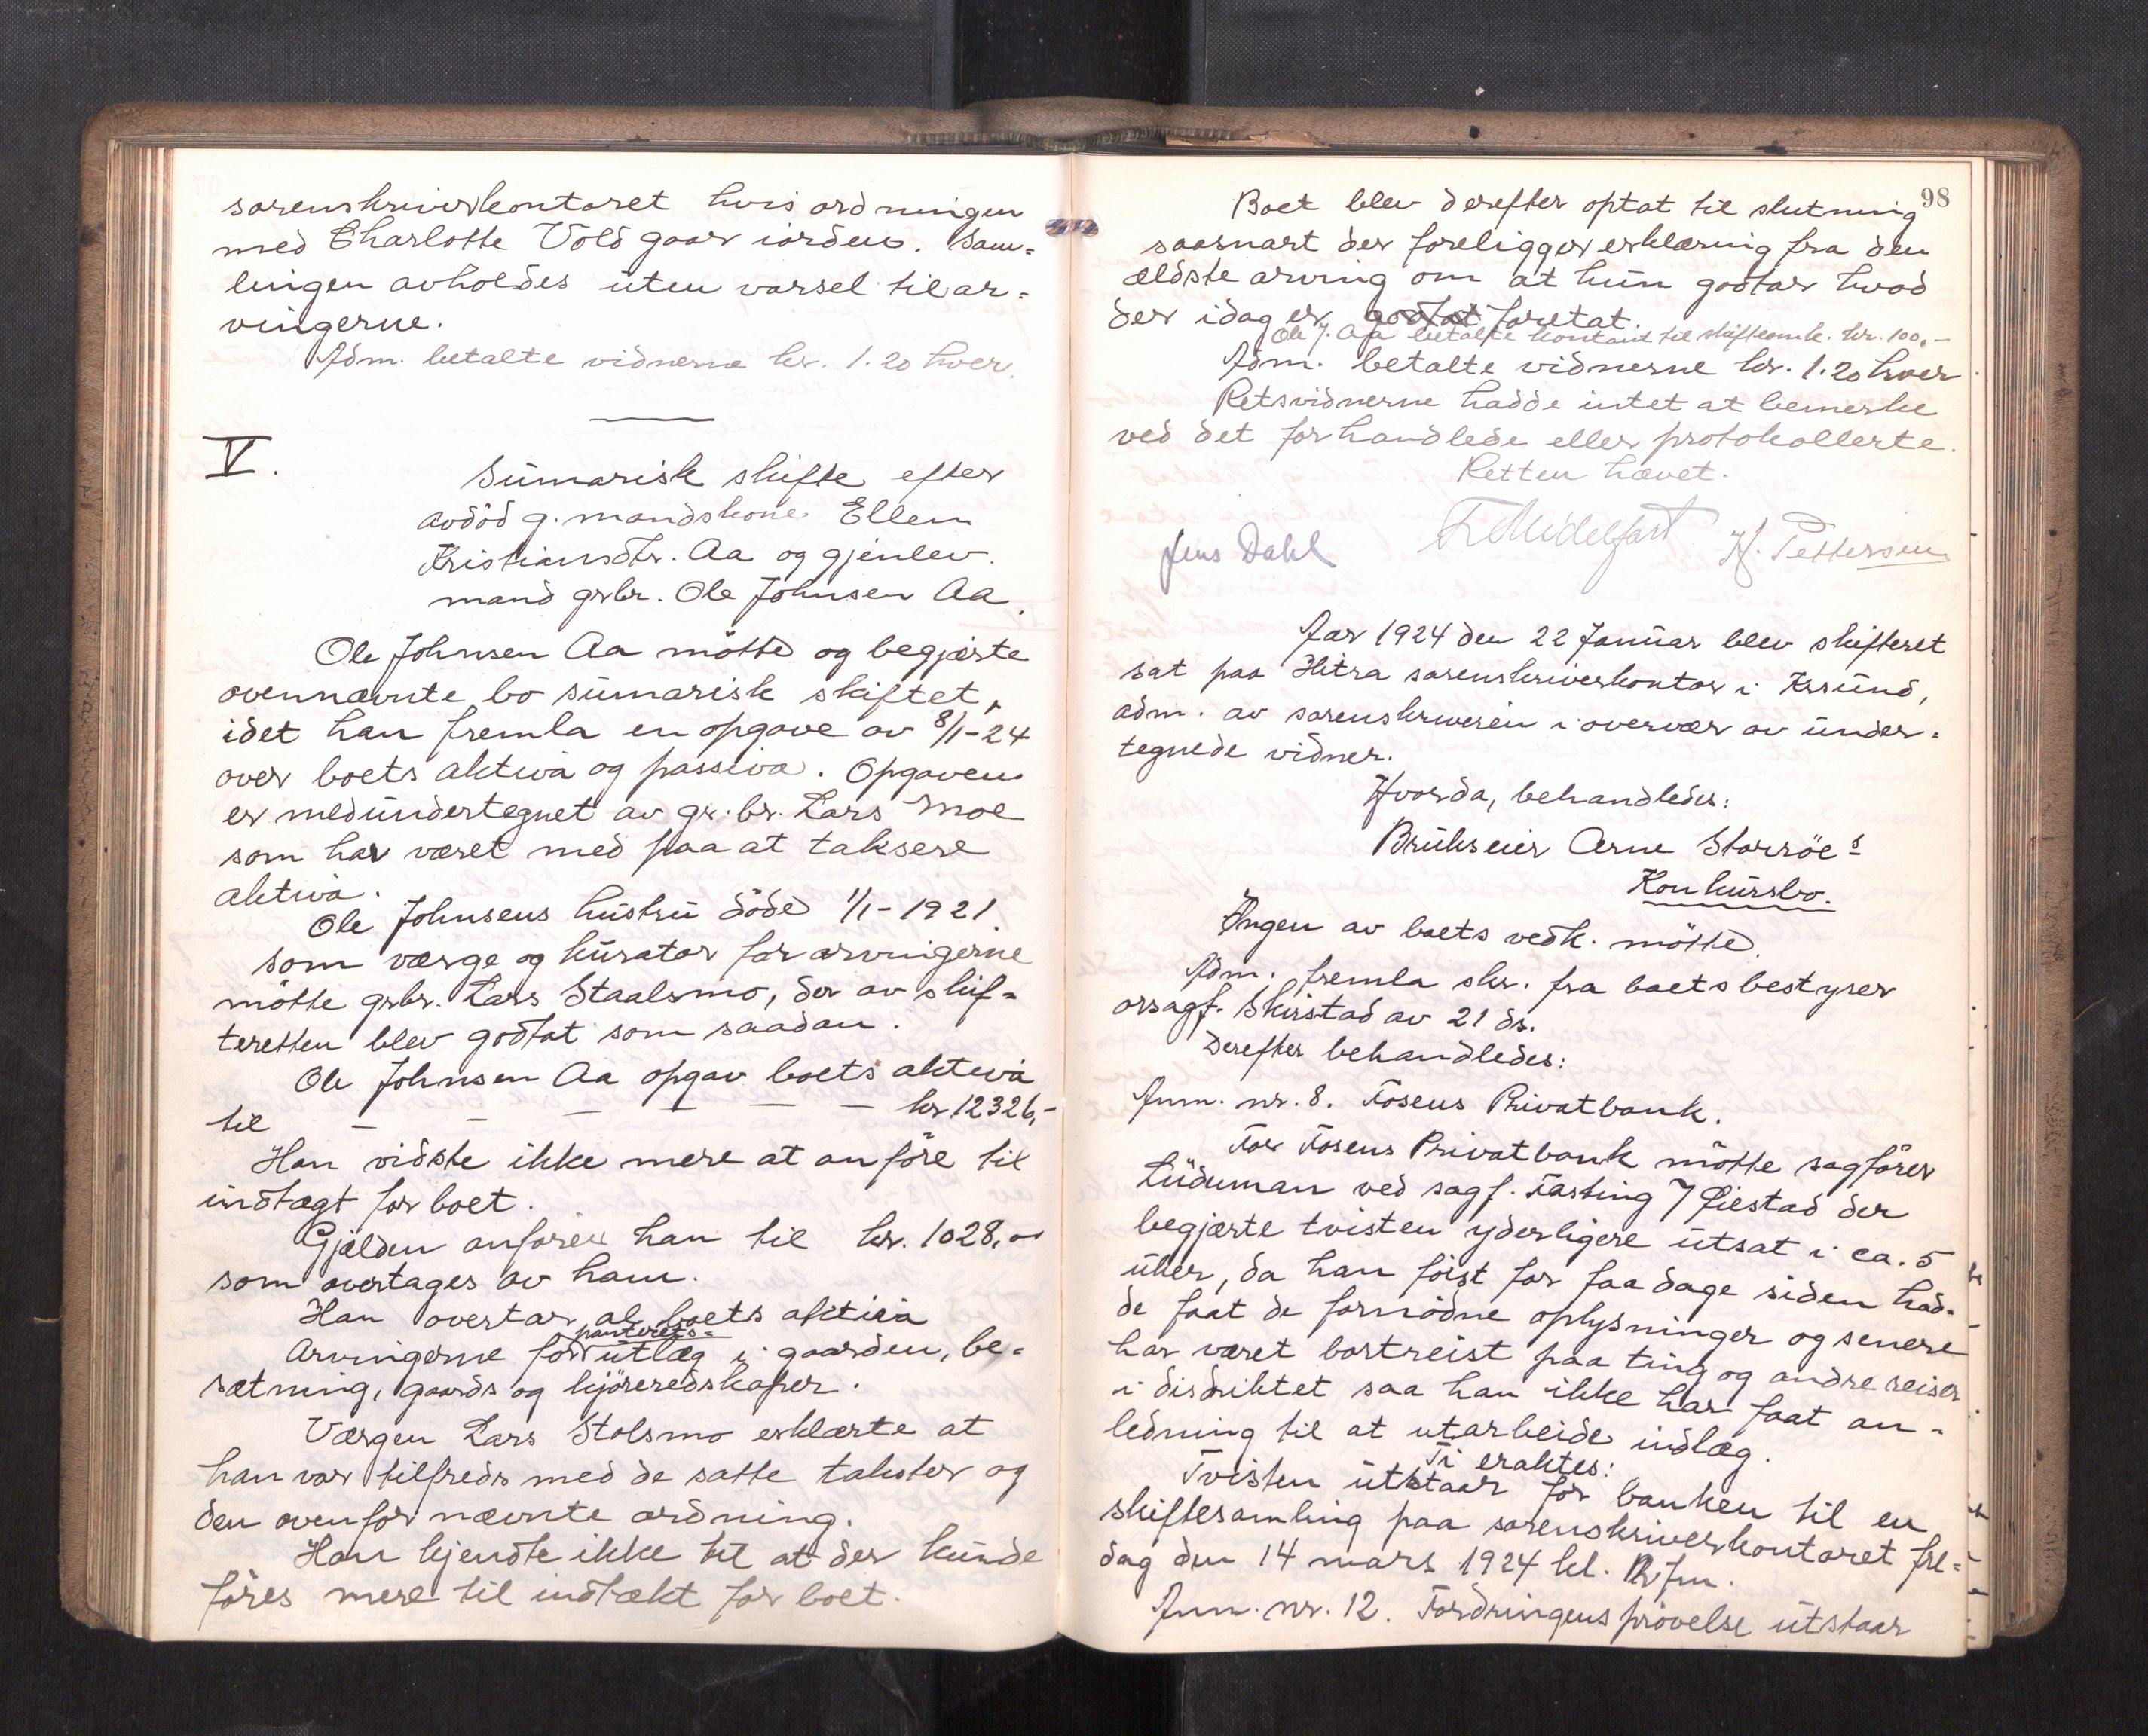 sorenskriverkontoret hvis ordningen
med Charlotte Vold gaar iorden. Sam-
lingen avholdes uten varsel til ar-
vingerne.
Adm. betalte vidnerne kr. 1.20 hver.
V.
Sumarisk skifte efter
avdöd g. mandskone Ellen
Kristiansdtr. Aa og gjenlev.
mand grbr. Ole Johnsen Aa.
Ole Johnsen Aa mötte og begjærte
ovennævnte bo sumarisk skiftet,
idet han fremla en opgave av 8/1-24
over boets aktiva og passiva. Opgaven
er medundertegnet av gr.br. Lars Moe
som har været med paa at taksere
aktiva.
Ole Johnsens hustru döde 1/1-1921.
Som værge og kurator for arvingerne
mötte grbr. Lars Staalsmo, der av skif-
teretten blev godtat som saadan.
Ole Johnsen Aa opgav boets aktiva
til — — — — — — kr. 12326,-
Han vidste ikke mere at anföre til
indtægt for boet.
Gjælden anförer han til kr. 1028,00
som overtages av ham.
Han overtar al boets aktiva
panterets-
Arvingerne for utlæg i gaarden, be-
sætning, gaards og kjöreredskaper.
Værgen Lars Stolsmo erklærte at
han var tilfreds med de satte takster og
den ovenfor nævnte ordning.
Han kjendte ikke til at der kunde
föres mere til indtækt for boet.
98
Boet blev derefter optat til slutning
saasnart der foreligger erklæring fra den
ældste arving om at hun godtar hvad
der idag er godtat foretat.
Ole J. Aa betalte kontant til skifteomk. kr. 100,-
Adm. betalte vidnerne kr. 1.20 hver
Retsvidnerne hadde intet at bemerke
ved det forhandlede eller protokollerte.
Retten hævet.
Jens Dahl F. Midelfart H. Pettersen
Aar 1924 den 22 Januar blev skifteret
sat paa Hitra sorenskriverkontor i Krsund,
adm. av sorenskriveren i overvær av under-
tegnede vidner.
Hvorda, behandledes:
Brukseier Arne Storröes
Konkursbo.
Ingen av boets vedk. mötte.
Adm. fremla skr. fra boets bestyrer
orsagf. Skirstad av 21 ds.
Derefter behandledes:
Anm. nr. 8. Fosens Privatbank.
For Fosens Privatbank mötte sagförer
Lüduman ved sagf. Fasting 7 Øiestad der
begjærte tvisten yderligere utsat i ca. 5
uker, da han först for faa dage siden had-
de faat de fornödne oplysninger og senere
har været bortreist paa ting og andre reiser
i distriktet saa han ikke har faat an-
ledning til at utarbeide indlæg.
Ti eraktes:
Tvisten utstaar for banken til en
skiftesamling paa sorenskriverkontoret fre-
dag den 14 mars 1924 kl. 12 fm.
Anm. nr. 12. Fordringens prövelse utstaar